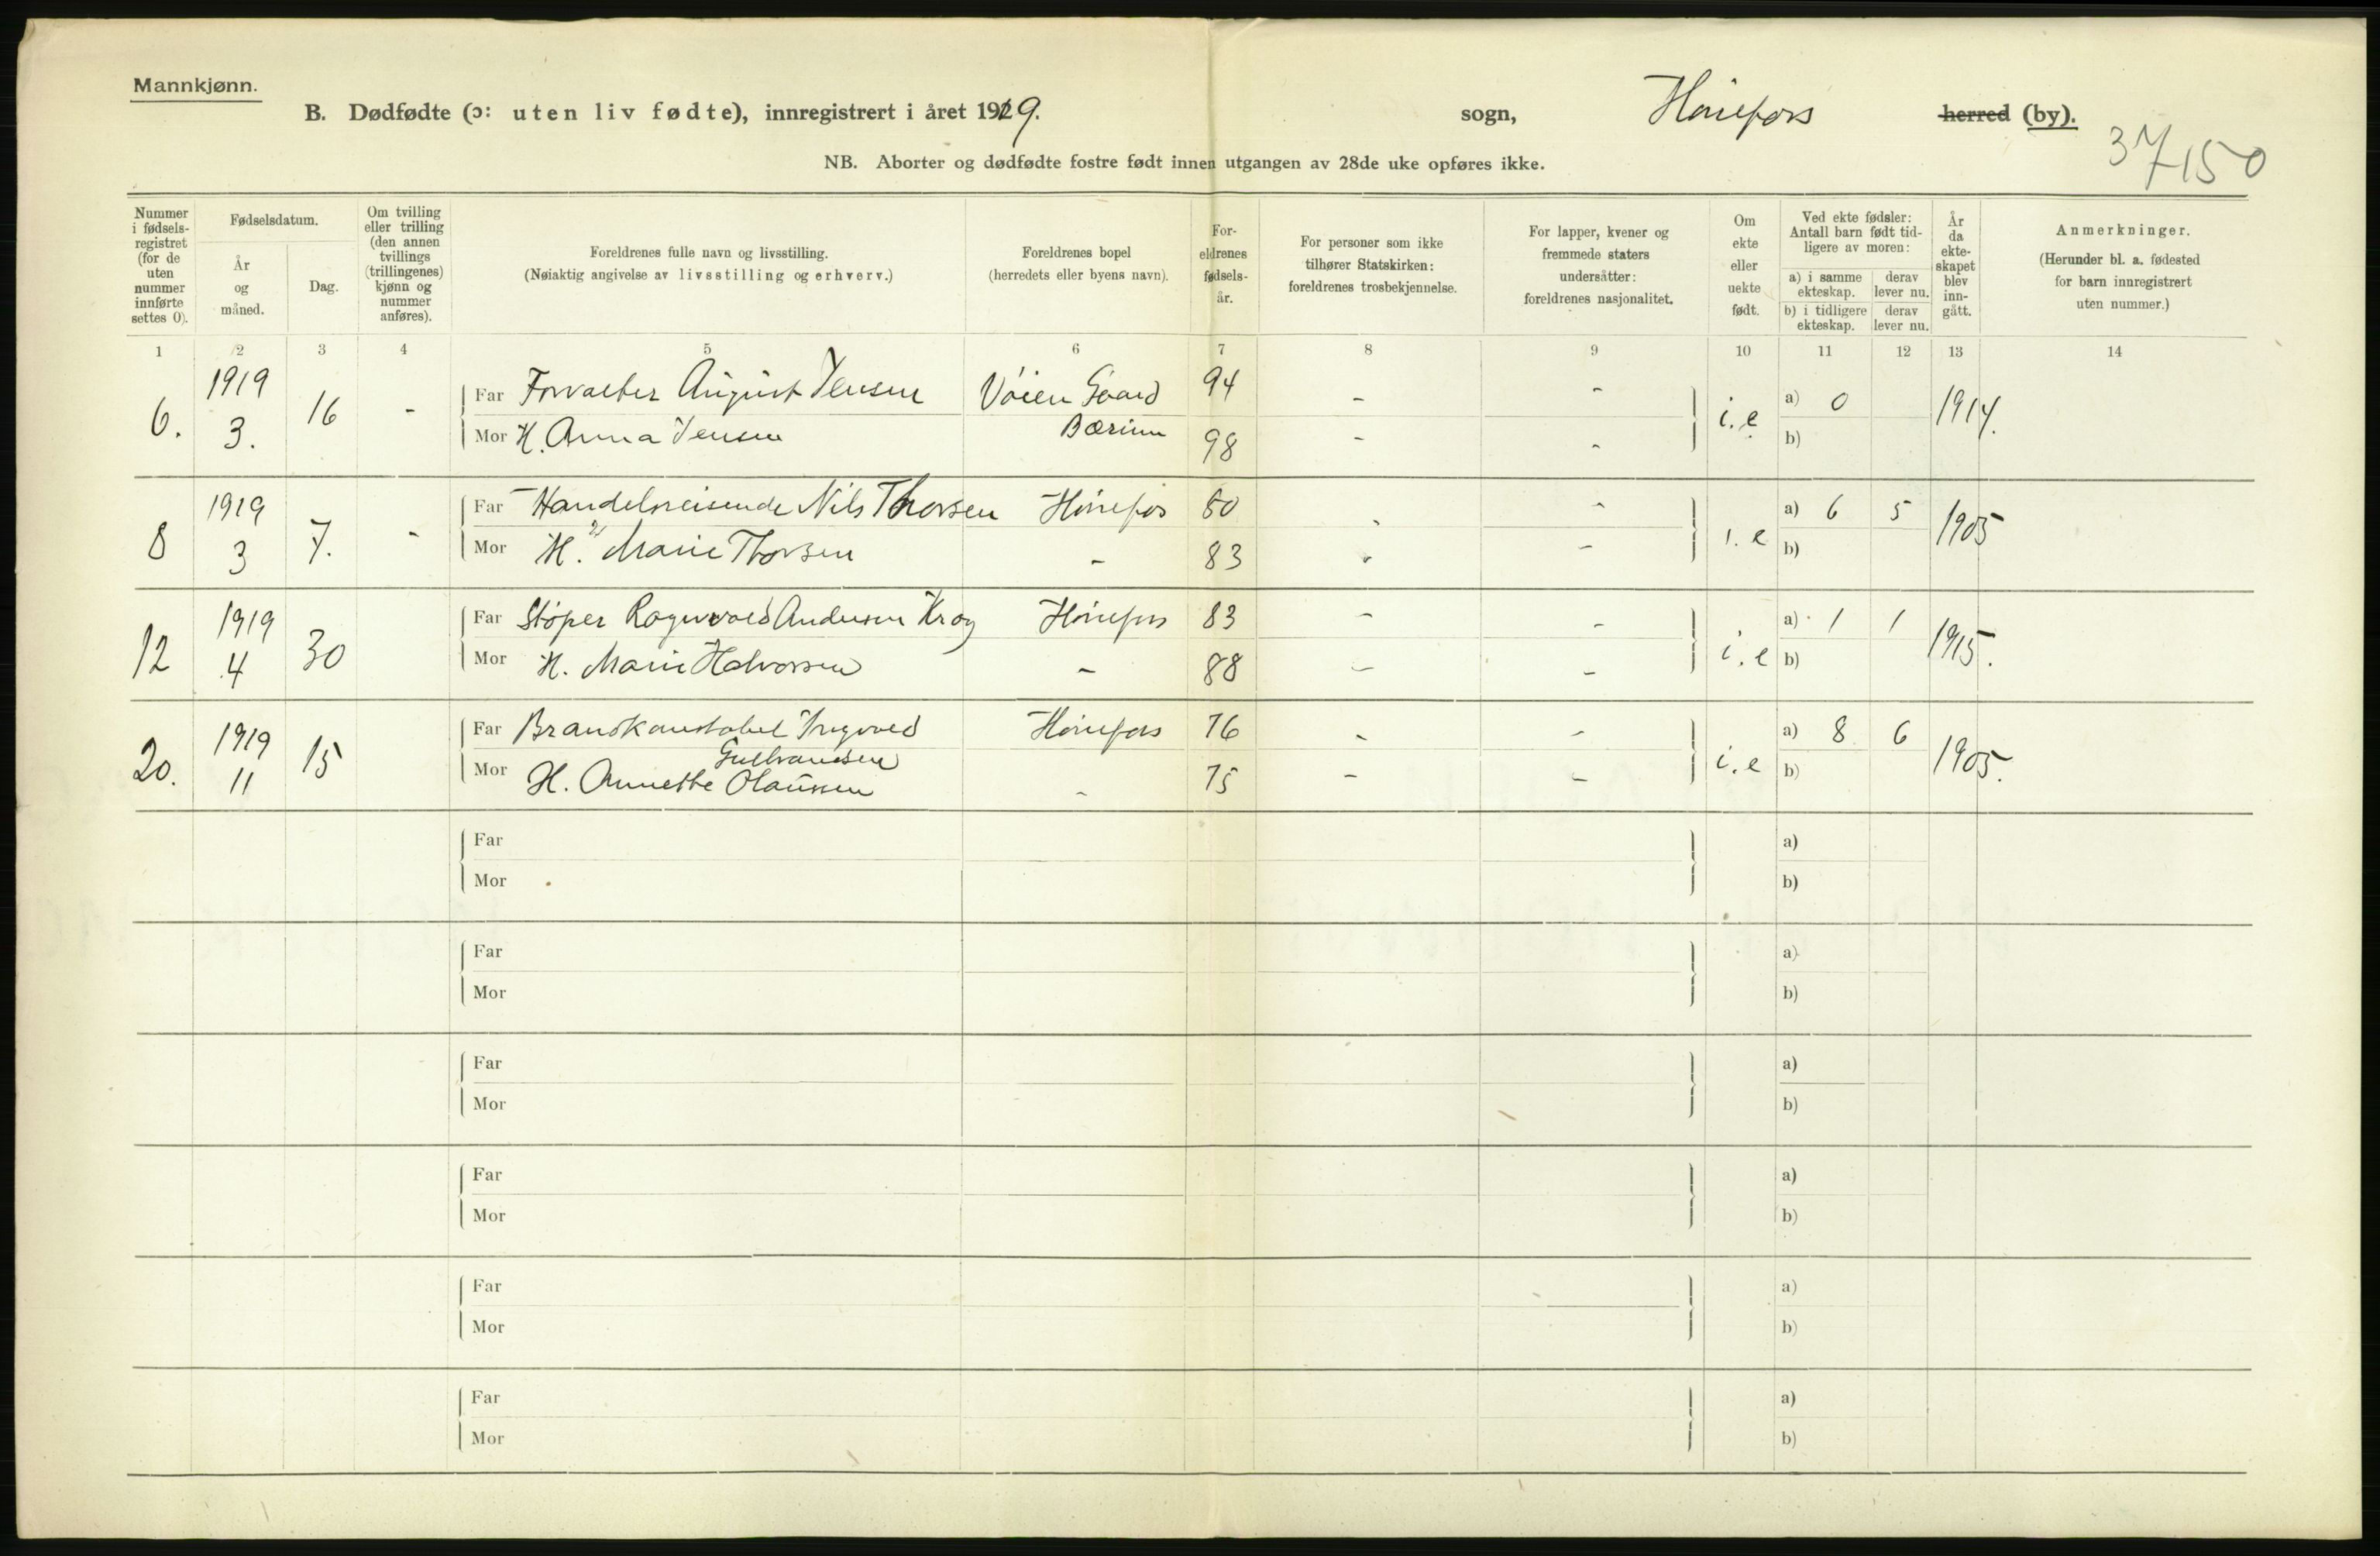 Mannkjønn.
B. Dødfødte (ɔ: uten liv fødte), innregistrert i året 1919. sogn, Hönefoss herred (by).
37150
NB. Aborter og dødfødte fostre født innen utgangen av 28de uke opføres ikke.
Nummer i fødsels-registret (for de uten nummer innførte settes 0).
Fødselsdatum.
År og måned.
Dag.
Om tvilling eller trilling (den annen tvillings (trillingenes) kjønn og nummer anføres).
Foreldrenes fulle navn og livsstilling.
(Nøiaktig angivelse av livsstilling og erhverv.)
Foreldrenes bopel
(herredets eller byens navn).
For-eldrenes fødsels-år.
For personer som ikke tilhører Statskirken: foreldrenes trosbekjennelse.
For lapper, kvener og fremmede staters undersåtter: foreldrenes nasjonalitet.
Om ekte eller uekte født.
Ved ekte fødsler: Antall barn født tid-ligere av moren:
a) i samme ekteskap. derav lever nu.
b) i tidligere ekteskap. derav lever nu.
År da ekte-skapet blev inn-gått.
Anmerkninger.
(Herunder bl. a. fødested for barn innregistrert uten nummer.)
1 2 3 4 5 6 7 8 9 10 11 12 13 14
6. 1919 3. 16 - Far Forvalter August Jensen Vöien Gaard 94 - - i.e a) 0 1914.
Mor H. Anna Jensen Bærum 98 - - b)
8 1919 3 7. - Far Handelsreisende Nils Thorsen Hönefos 80 - - i.e a) 6 5 1905
Mor H." Marie Thorsen - 83 - - b)
12 1919 4 30 Far Stöper Ragnvald Andersen Krog Hönefos 83 - - i.e a) 1 1 1915.
Mor H. Marie Halvorsen - 88 - - b)
20. 1919 11 15 Far Brandkonstabel Ingvald Hönefoss 76 - - i.e a) 8 6 1905.
Gulbrandsen
Mor H. Annette Olaussen - 75 - - b)
Far a)
Mor b)
Far a)
Mor b)
Far a)
Mor b)
Far a)
Mor b)
Far a)
Mor b)
Far a)
Mor b)